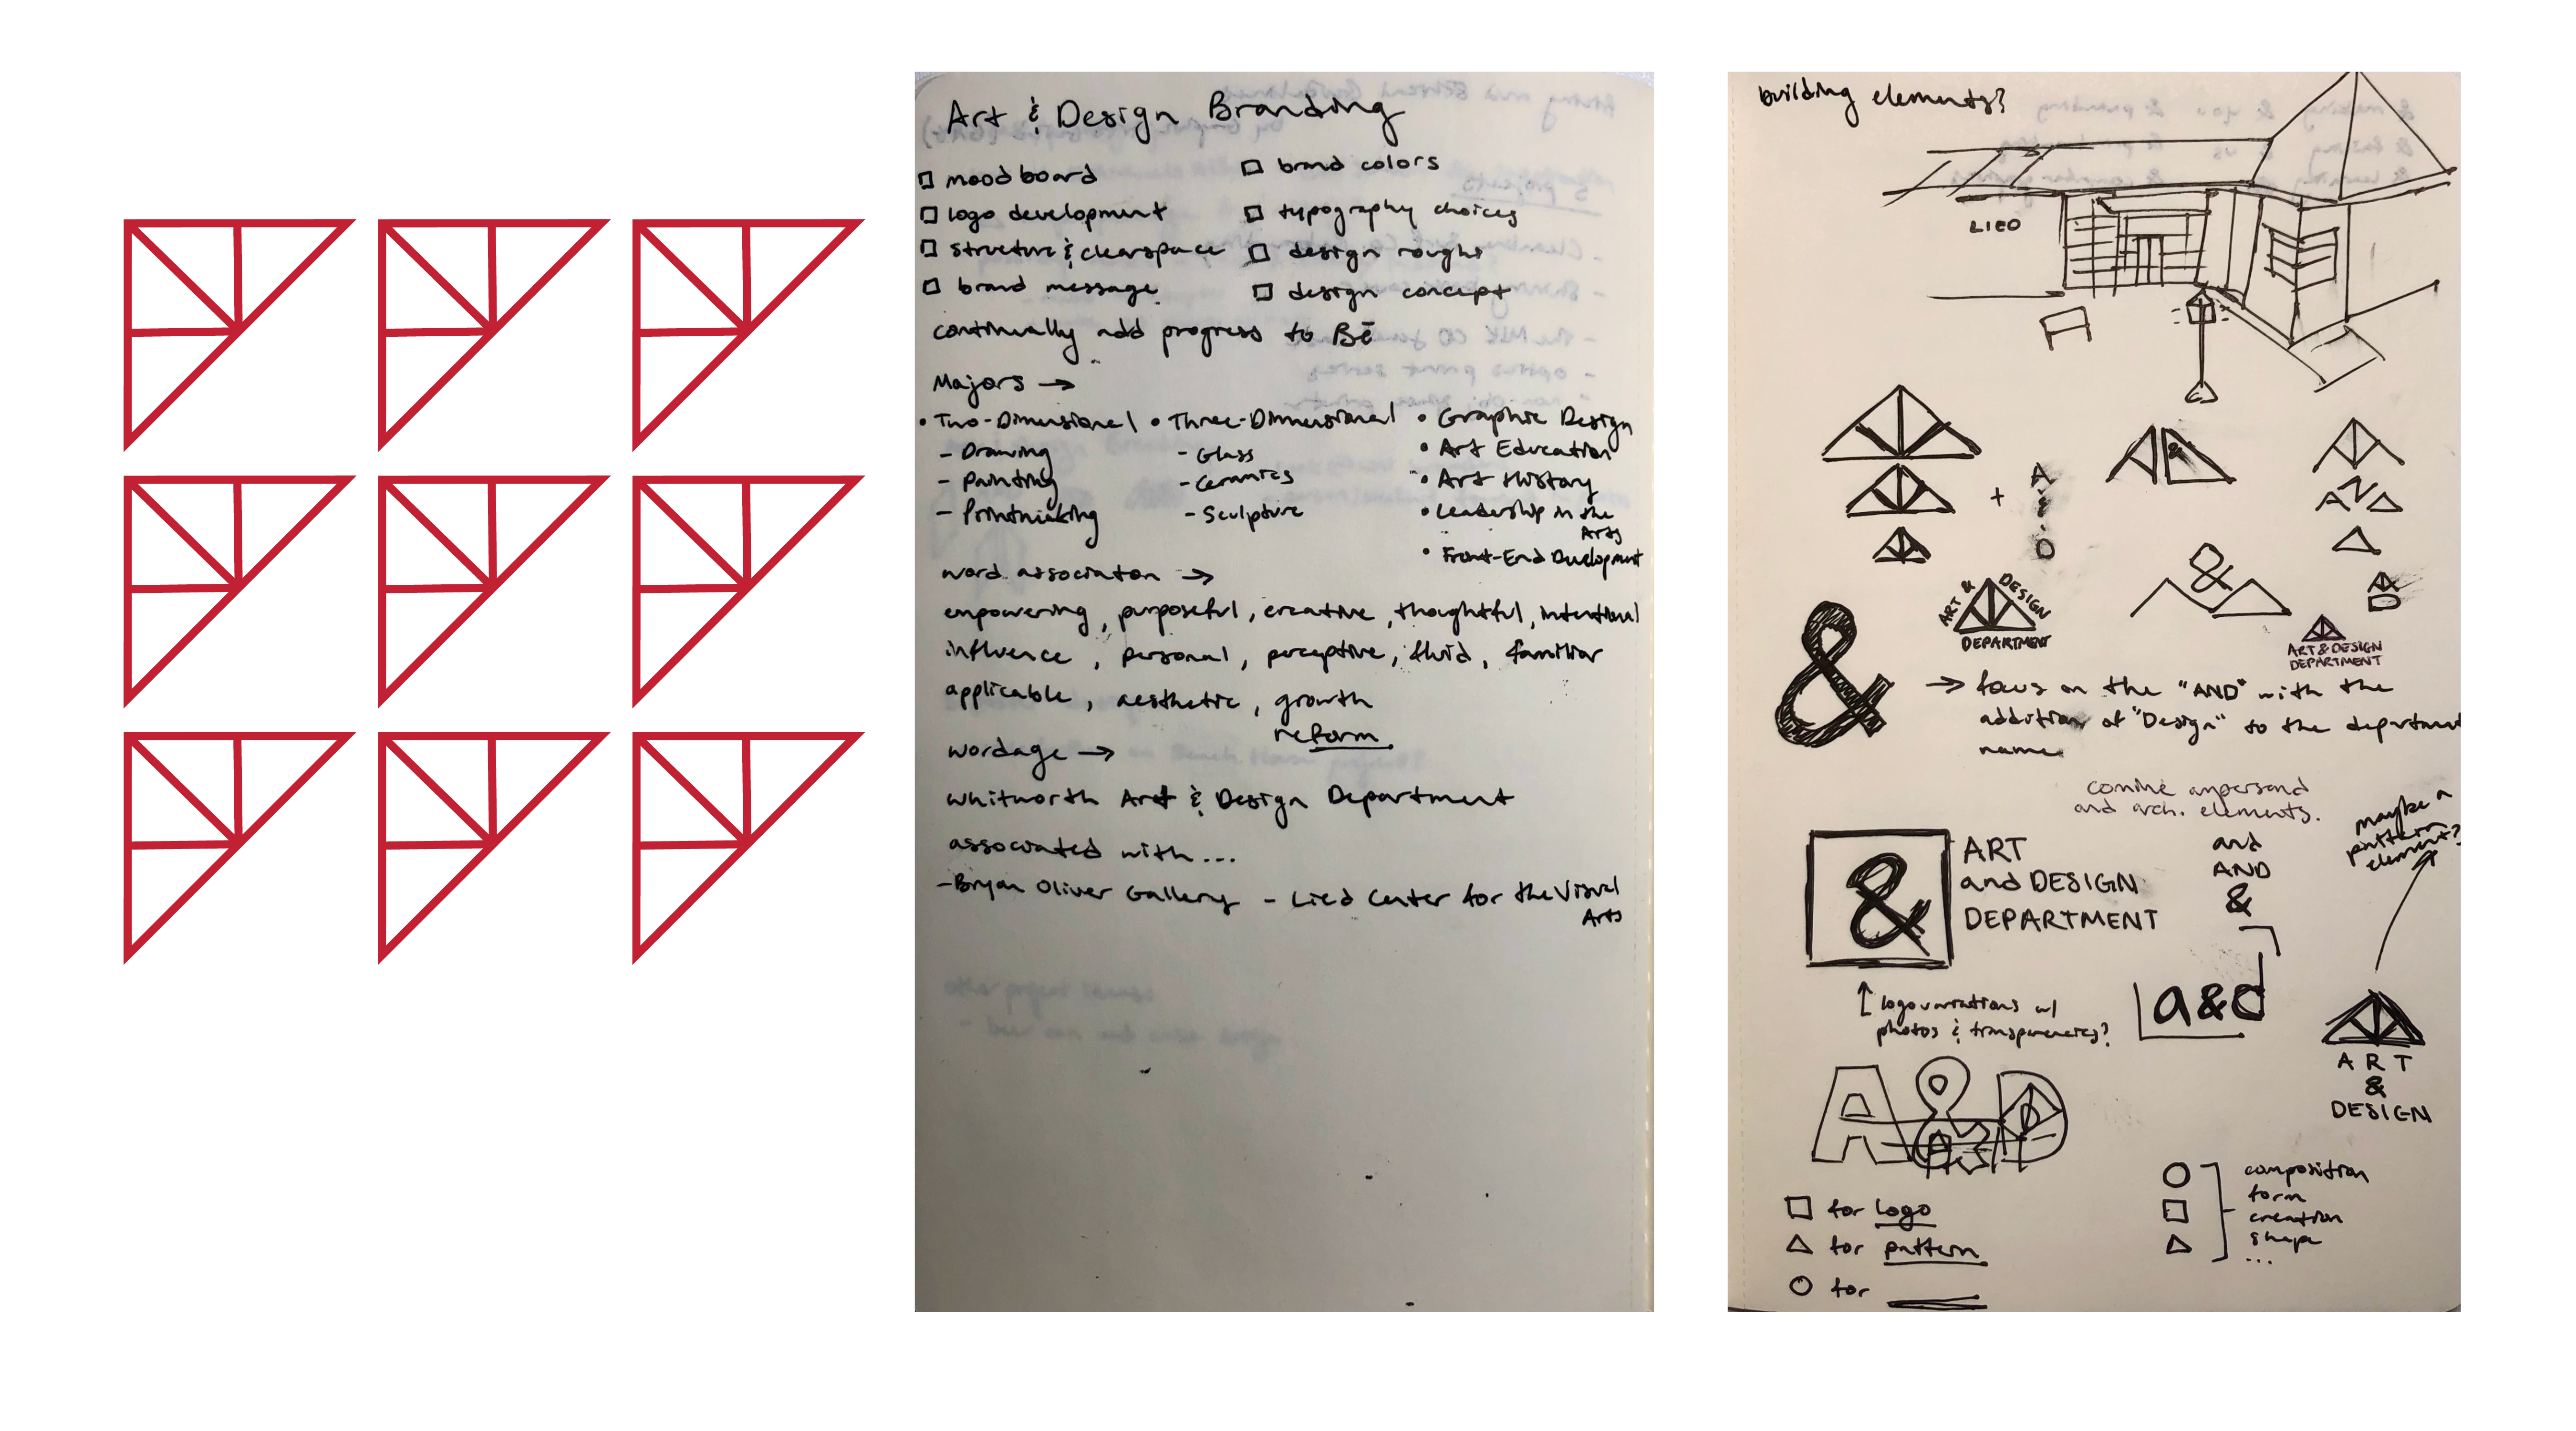 Art & Design Branding
mood board
brand colors
logo development
typography choices
structure & clearspace
design roughs
brand message
design concept
continually add progress to Bē
Majors →
• Two-Dimensional
- Drawing
- Painting
- Printmaking
• Three-Dimensional
- Glass
- Ceramics
- Sculpture
• Graphic Design
• Art Education
• Art History
• Leadership in the
Arts
• Front-End Development
word association →
empowering, purposeful, creative, thoughtful, intentional
influence, personal, perceptive, fluid, familiar
applicable, aesthetic, growth
reform
wordage →
Whitworth Art & Design Department
associated with...
- Bryan Oliver Gallery - Lied Center for the Visual
Arts
building elements?
LIED
+
A
&
D
A&D
AND
&
ART & DESIGN
DEPARTMENT
ART & DESIGN
DEPARTMENT
&
→ focus on the "AND" with the
addition of "Design" to the department
name
comine ampersand
and arch. elements.
maybe a
pattern
element?
&
ART
and DESIGN
DEPARTMENT
and
AND
&
a&d
↑ logo variations w/
photos & transparencies?
ART
&
DESIGN
A&D
for logo
for pattern
for
composition
form
creation
shape
...